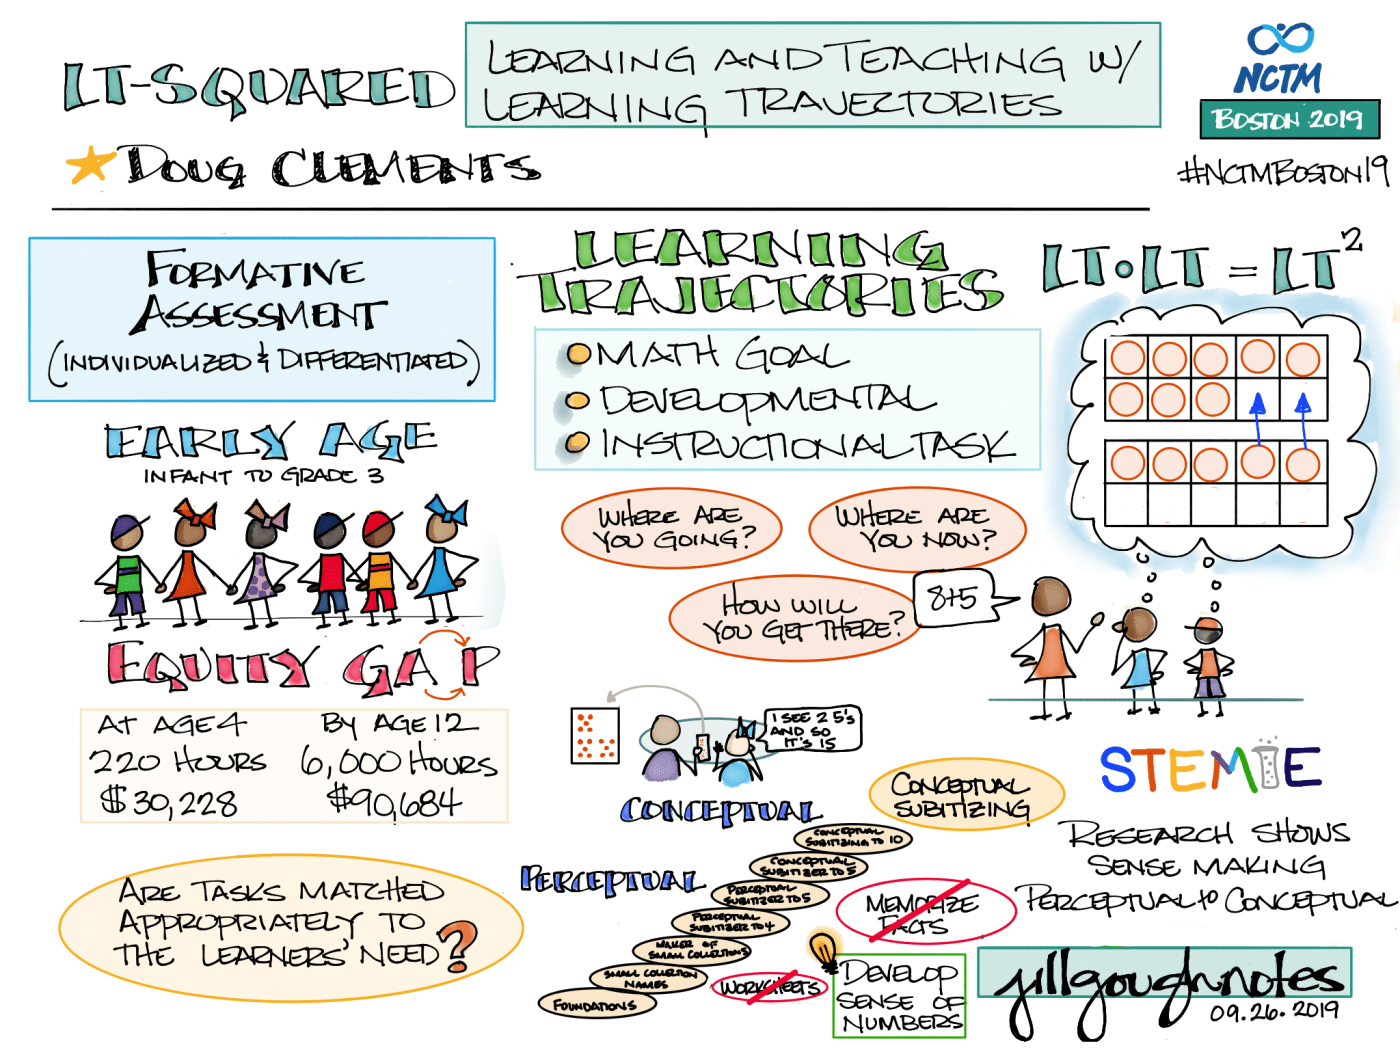 LT-SQUARED
LEARNING AND TEACHING W/
LEARNING TRAJECTORIES
NCTM
BOSTON 2019
#NCTMBOSTON19
DOUG CLEMENTS
FORMATIVE
ASSESSMENT
(INDIVIDUALIZED & DIFFERENTIATED)
EARLY AGE
INFANT TO GRADE 3
EQUITY GAP
AT AGE 4
220 HOURS
$30,228
BY AGE 12
6,000 HOURS
$90,684
ARE TASKS MATCHED
APPROPRIATELY TO
THE LEARNERS' NEED?
LEARNING
TRAJECTORIES
MATH GOAL
DEVELOPMENTAL
INSTRUCTIONAL TASK
WHERE ARE
YOU GOING?
WHERE ARE
YOU NOW?
HOW WILL
YOU GET THERE?
I SEE 2 5's
AND SO
IT'S 15
CONCEPTUAL
PERCEPTUAL
CONCEPTUAL
SUBITIZING
CONCEPTUAL
SUBITIZING TO 10
CONCEPTUAL
SUBITIZER TO 5
PERCEPTUAL
SUBITIZER TO 5
PERCEPTUAL
SUBITIZER TO 4
MAKER OF
SMALL COLLECTIONS
SMALL COLLECTION
NAMES
FOUNDATIONS
WORKSHEETS
MEMORIZE
FACTS
DEVELOP
SENSE OF
NUMBERS
LT•LT = LT²
8+5
STEMIE
RESEARCH SHOWS
SENSE MAKING
PERCEPTUAL to CONCEPTUAL
jillgoughnotes
09.26.2019